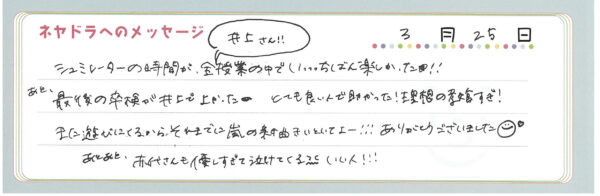 ネヤドラへのメッセージ
井上さん!!
3月25日
シュミレーターの時間が、全授業の中でいっっちばん楽しかった!!
あと、最後の卒検が井上で上がった とても良い人で助かった!理想の すぎ!
また遊びにくるから、それまでに嵐の新曲きいといてよー!!! ありがとうございました
あとあと、赤代さんも優しすぎて泣けてくる いい人!!!